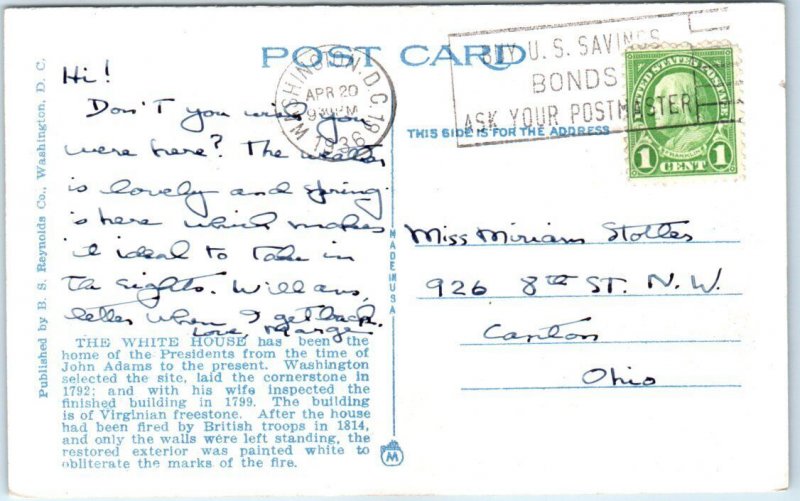 POST CARD
THIS SIDE IS FOR THE ADDRESS
WASHINGTON, D.C. 18
APR 20
930 PM
1936
BUY U. S. SAVINGS
BONDS
ASK YOUR POSTMASTER
UNITED STATES POSTAGE
FRANKLIN
1 CENT 1
Hi!
Don't you wish you
were here? The weather
is lovely and spring
is here which makes
it ideal to take in
the sights. Will ans.
letter when I get back.
Love, Marge
Miss Miriam Stotter
926 8th ST. N.W.
Canton
Ohio
Published by B. S. Reynolds Co., Washington, D. C.
MADE IN USA
THE WHITE HOUSE has been the
home of the Presidents from the time of
John Adams to the present. Washington
selected the site, laid the cornerstone in
1792; and with his wife inspected the
finished building in 1799. The building
is of Virginian freestone. After the house
had been fired by British troops in 1814,
and only the walls were left standing, the
restored exterior was painted white to
obliterate the marks of the fire.
M